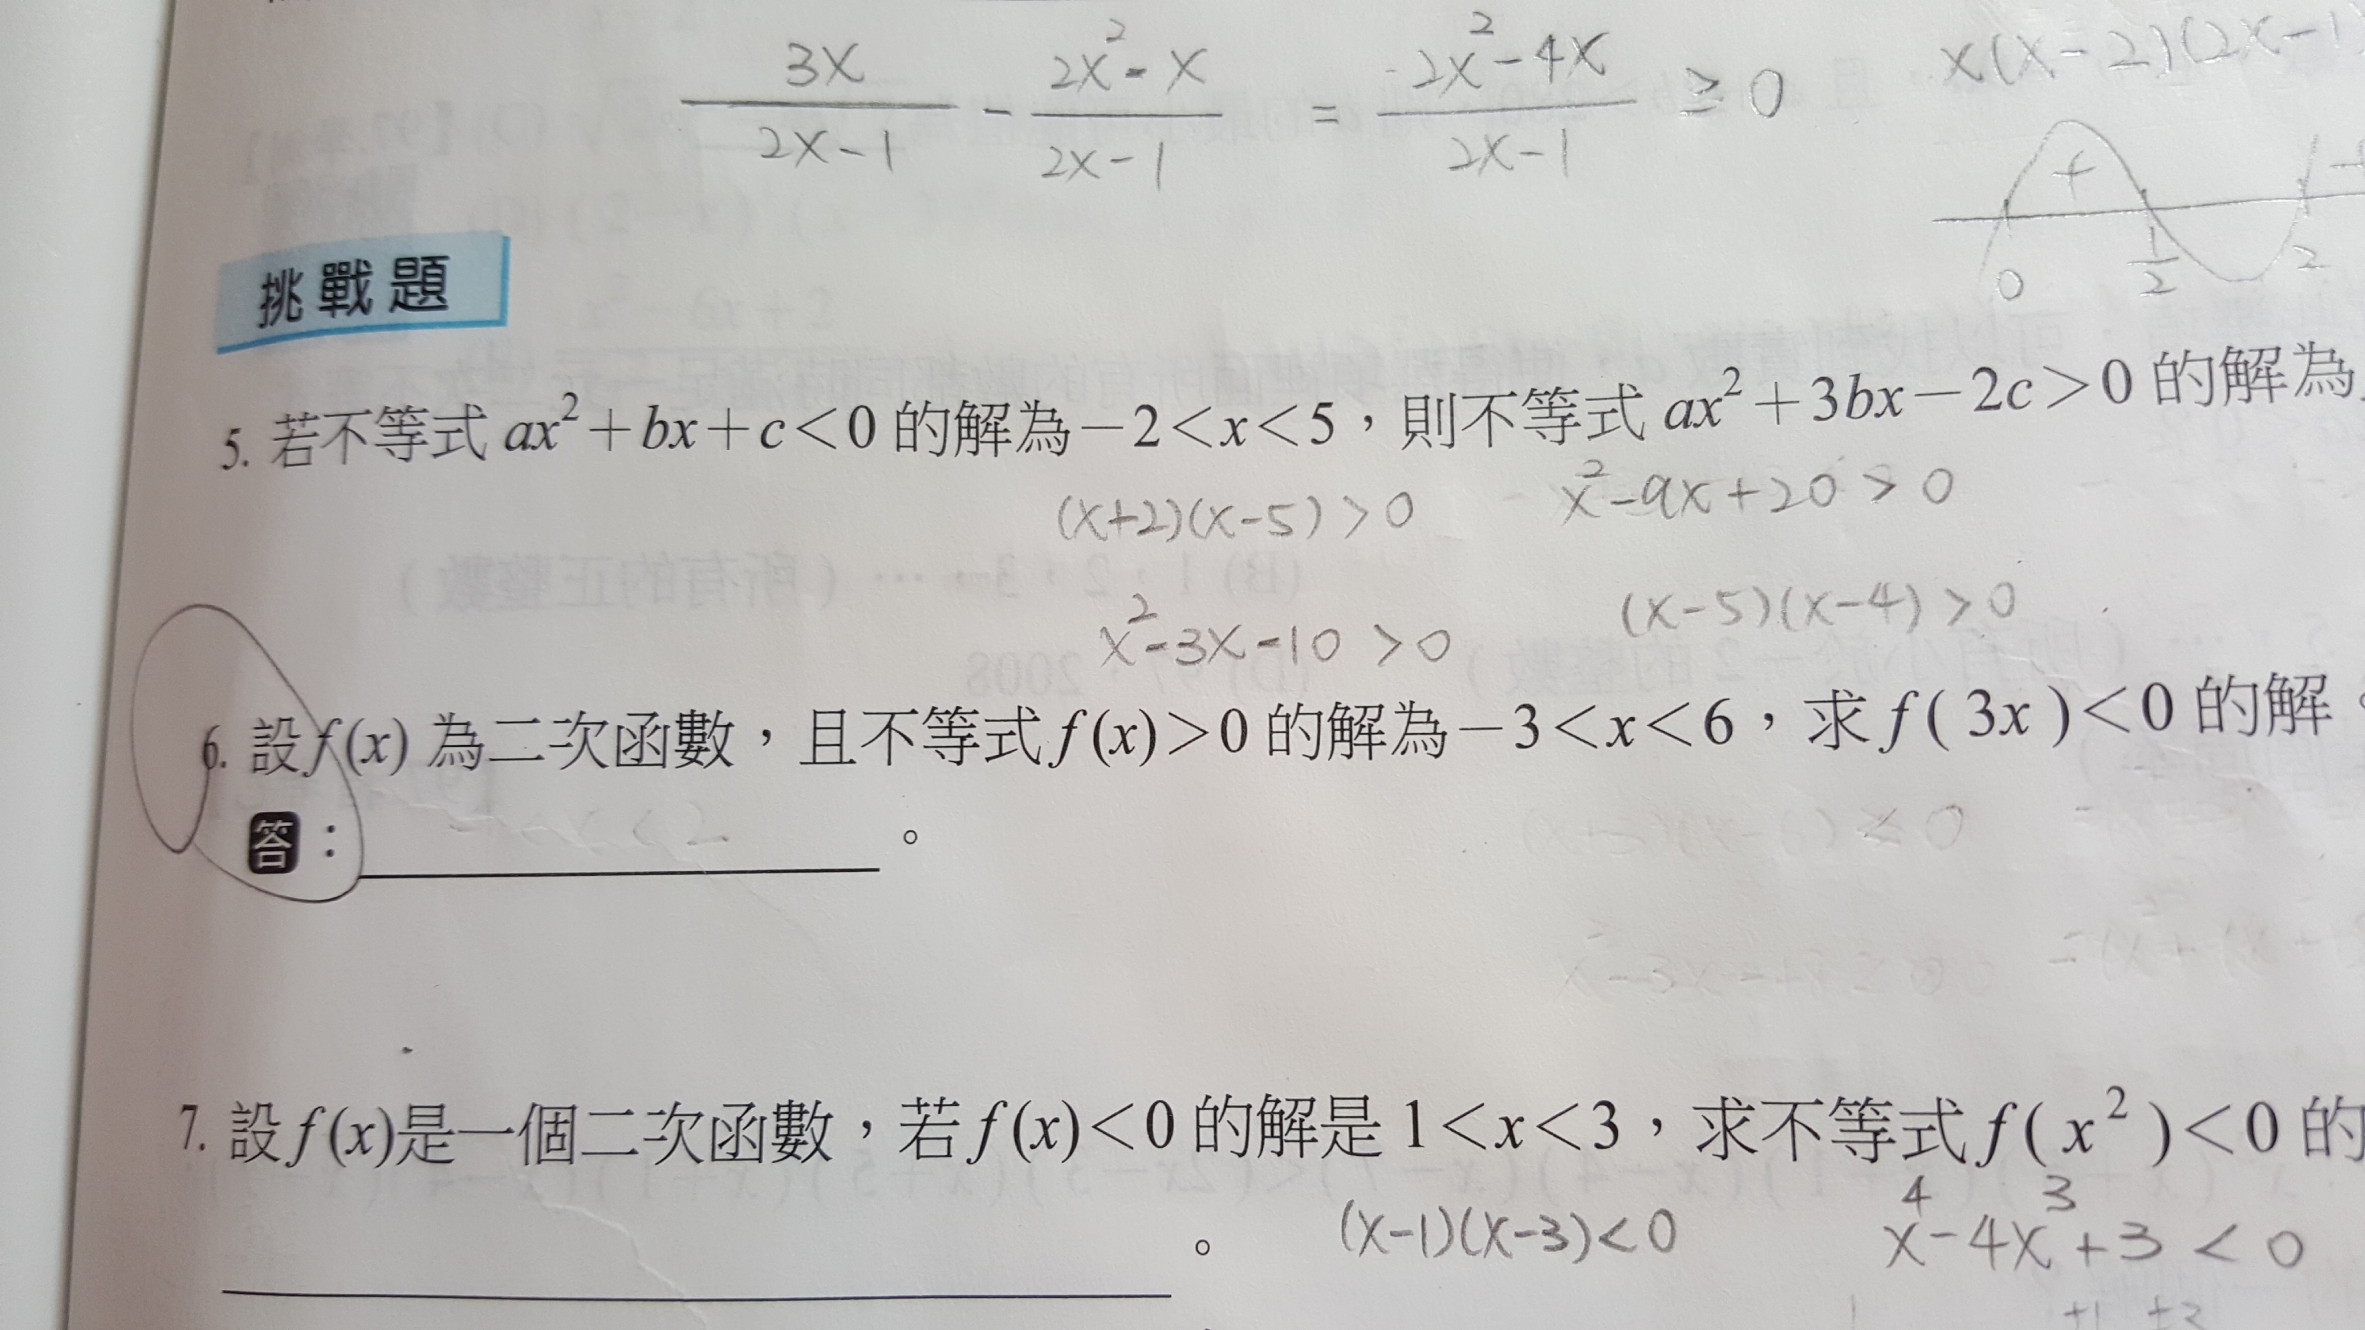 3x/2x-1 - 2x²-x/2x-1 = -2x²-4x/2x-1 ≥ 0
x(x-2)(2x-1)
+
0 1/2 2
挑戰題
5. 若不等式 ax²+bx+c<0 的解為-2<x<5，則不等式 ax²+3bx-2c>0 的解為
(x+2)(x-5)>0 x²-9x+20>0
(x-5)(x-4)>0
x²-3x-10>0
6. 設f(x) 為二次函數，且不等式f(x)>0 的解為-3<x<6，求f(3x)<0 的解。
答：。
7. 設f(x)是一個二次函數，若f(x)<0 的解是1<x<3，求不等式f(x²)<0 的
。 (x-1)(x-3)<0 x⁴-4x³+3<0
±1 ±3